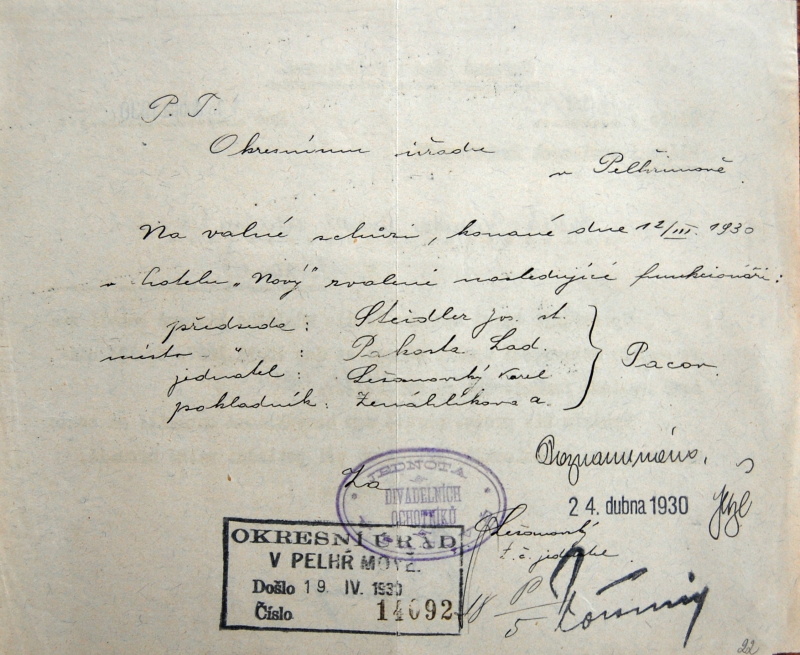 P. T.
Okresnímu úřadu
v Pelhřimově
Na valné schůzi, konané dne 12/III. 1930
v hotelu „Nový" zvoleni následující funkcionáři:
předseda: Steidler Jos. st.
místo " : Pakosta Lad.
jednatel: Lešanovský Karel
pokladník:
Pacov.
Poznamenáno.
Za
JEDNOTA
DIVADELNÍCH
OCHOTNÍKŮ
24. dubna 1930
Lešanovský
t. č. jednatel
OKRESNÍ ÚŘAD
V PELHŘIMOVĚ.
Došlo 19. IV. 1930
Číslo 14092
18 P/5
22